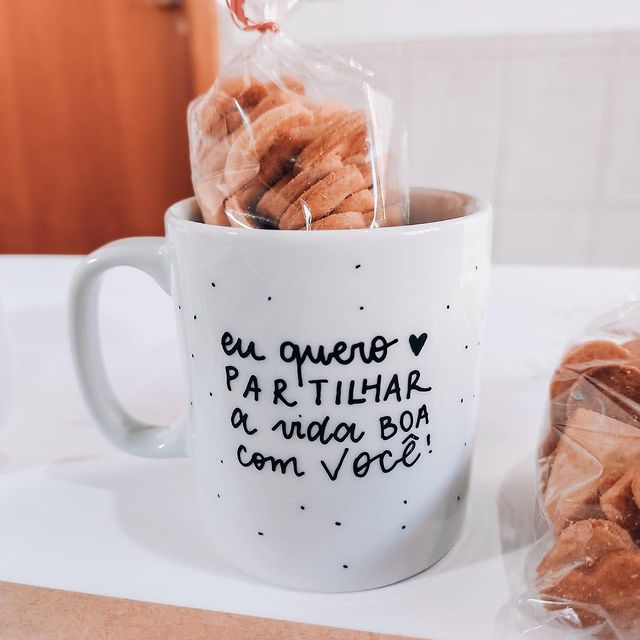 eu quero ♥
PARTILHAR
a vida BOA
com VOCÊ!